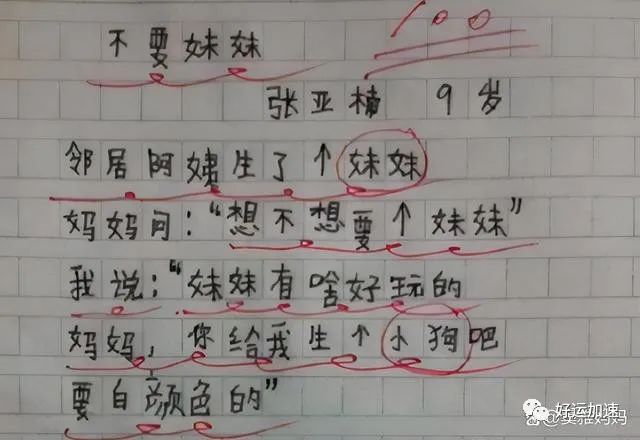 不要妹妹
100
张亚楠 9岁
邻居阿姨生了个妹妹
妈妈问：“想不想要个妹妹”
我说：“妹妹有啥好玩的
妈妈，你给我生个小狗吧
要白颜色的”
好运加速